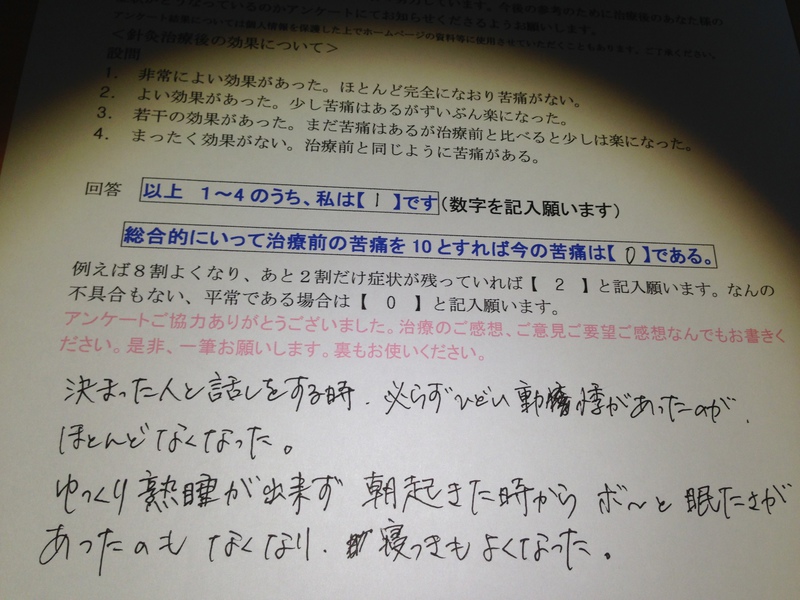 アンケートにてお知らせくださるようお願いします。
アンケート結果については個人情報を保護した上でホームページの資料等に使用させていただくこともあります。ご了承ください。
<針灸治療後の効果について>
設問
1. 非常によい効果があった。ほとんど完全になおり苦痛がない。
2. よい効果があった。少し苦痛はあるがずいぶん楽になった。
3. 若干の効果があった。まだ苦痛はあるが治療前と比べると少しは楽になった。
4. まったく効果がない。治療前と同じように苦痛がある。
回答 以上 1～4のうち、私は【 1 】です(数字を記入願います)
総合的にいって治療前の苦痛を10とすれば今の苦痛は【 0 】である。
例えば8割よくなり、あと2割だけ症状が残っていれば【 2 】と記入願います。なんの
不具合もない、平常である場合は【 0 】と記入願います。
アンケートご協力ありがとうございました。治療のご感想、ご意見ご要望ご感想なんでもお書きく
ださい。是非、一筆お願いします。裏もお使いください。
決まった人と話しをする時、必らずひどい動悸があったのが、
ほとんどなくなった。
ゆっくり熟睡が出来ず 朝起きた時から ボ～と 眠たさが
あったのも なくなり、寝つきも よくなった。